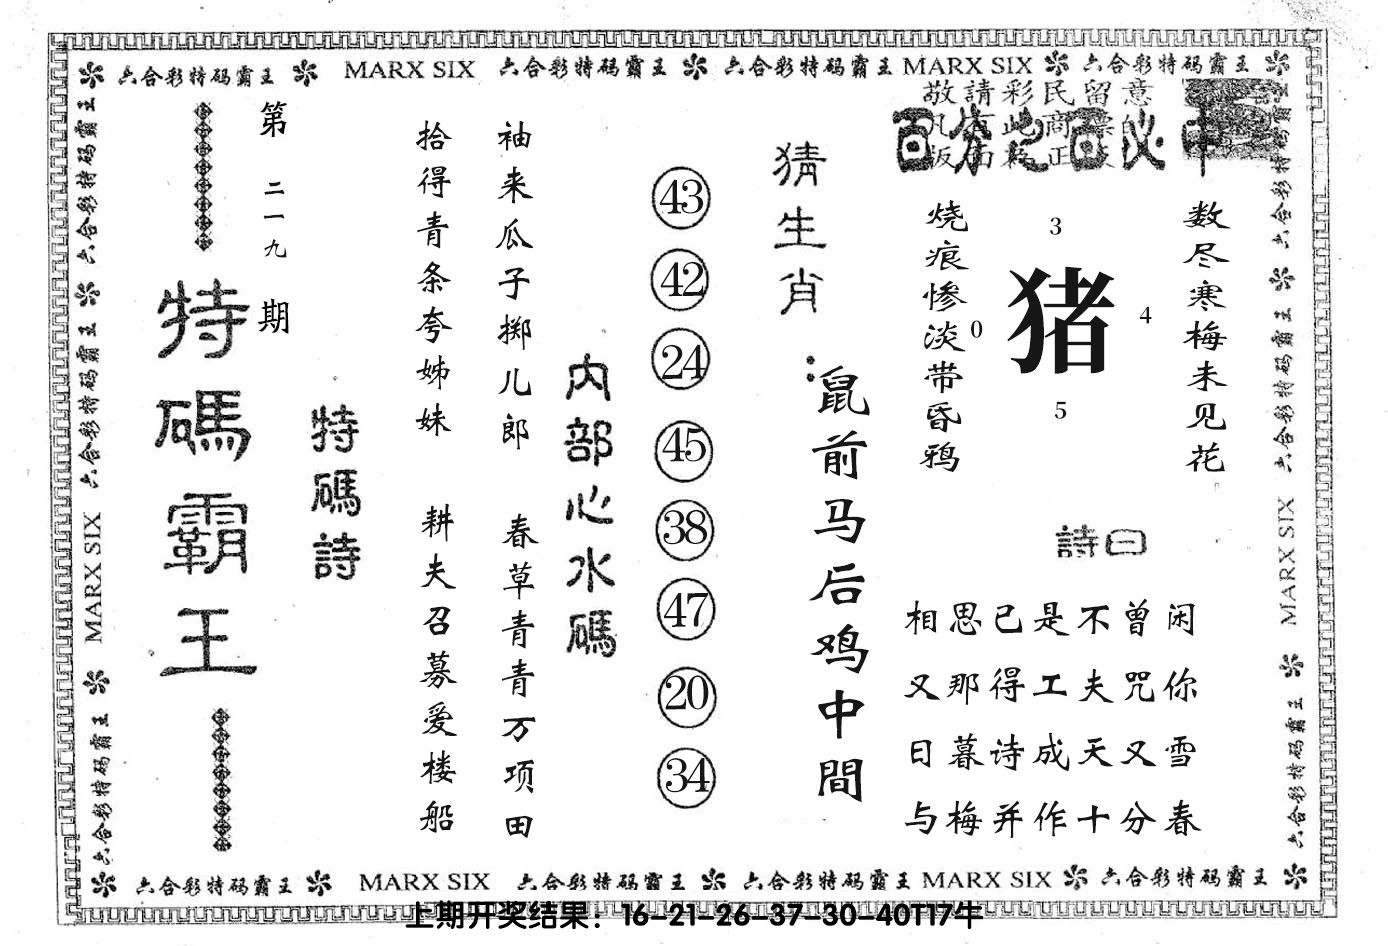 六合彩特码霸王 MARX SIX 六合彩特码霸王 六合彩特码霸王 MARX SIX 六合彩特码霸王
六合彩特码霸王 六合彩特码霸王 MARX SIX 六合彩特码霸王
第二一九期
特碼霸王
特碼詩
拾得青条夸姊妹 耕夫召募爱楼船
袖来瓜子掷儿郎 春草青青万项田
内部心水碼
43
42
24
45
38
47
20
34
猜生肖:
鼠前马后鸡中間
敬請彩民留意
百分之百必中
数尽寒梅未见花
烧痕惨淡带昏鸦
3
0
猪
4
5
詩曰
相思已是不曾闲
又那得工夫咒你
日暮诗成天又雪
与梅并作十分春
六合彩特码霸王 六合彩特码霸王 MARX SIX 六合彩特码霸王
六合彩特码霸王 MARX SIX 六合彩特码霸王 六合彩特码霸王 MARX SIX 六合彩特码霸王
上期开奖结果：16-21-26-37-30-40T17牛